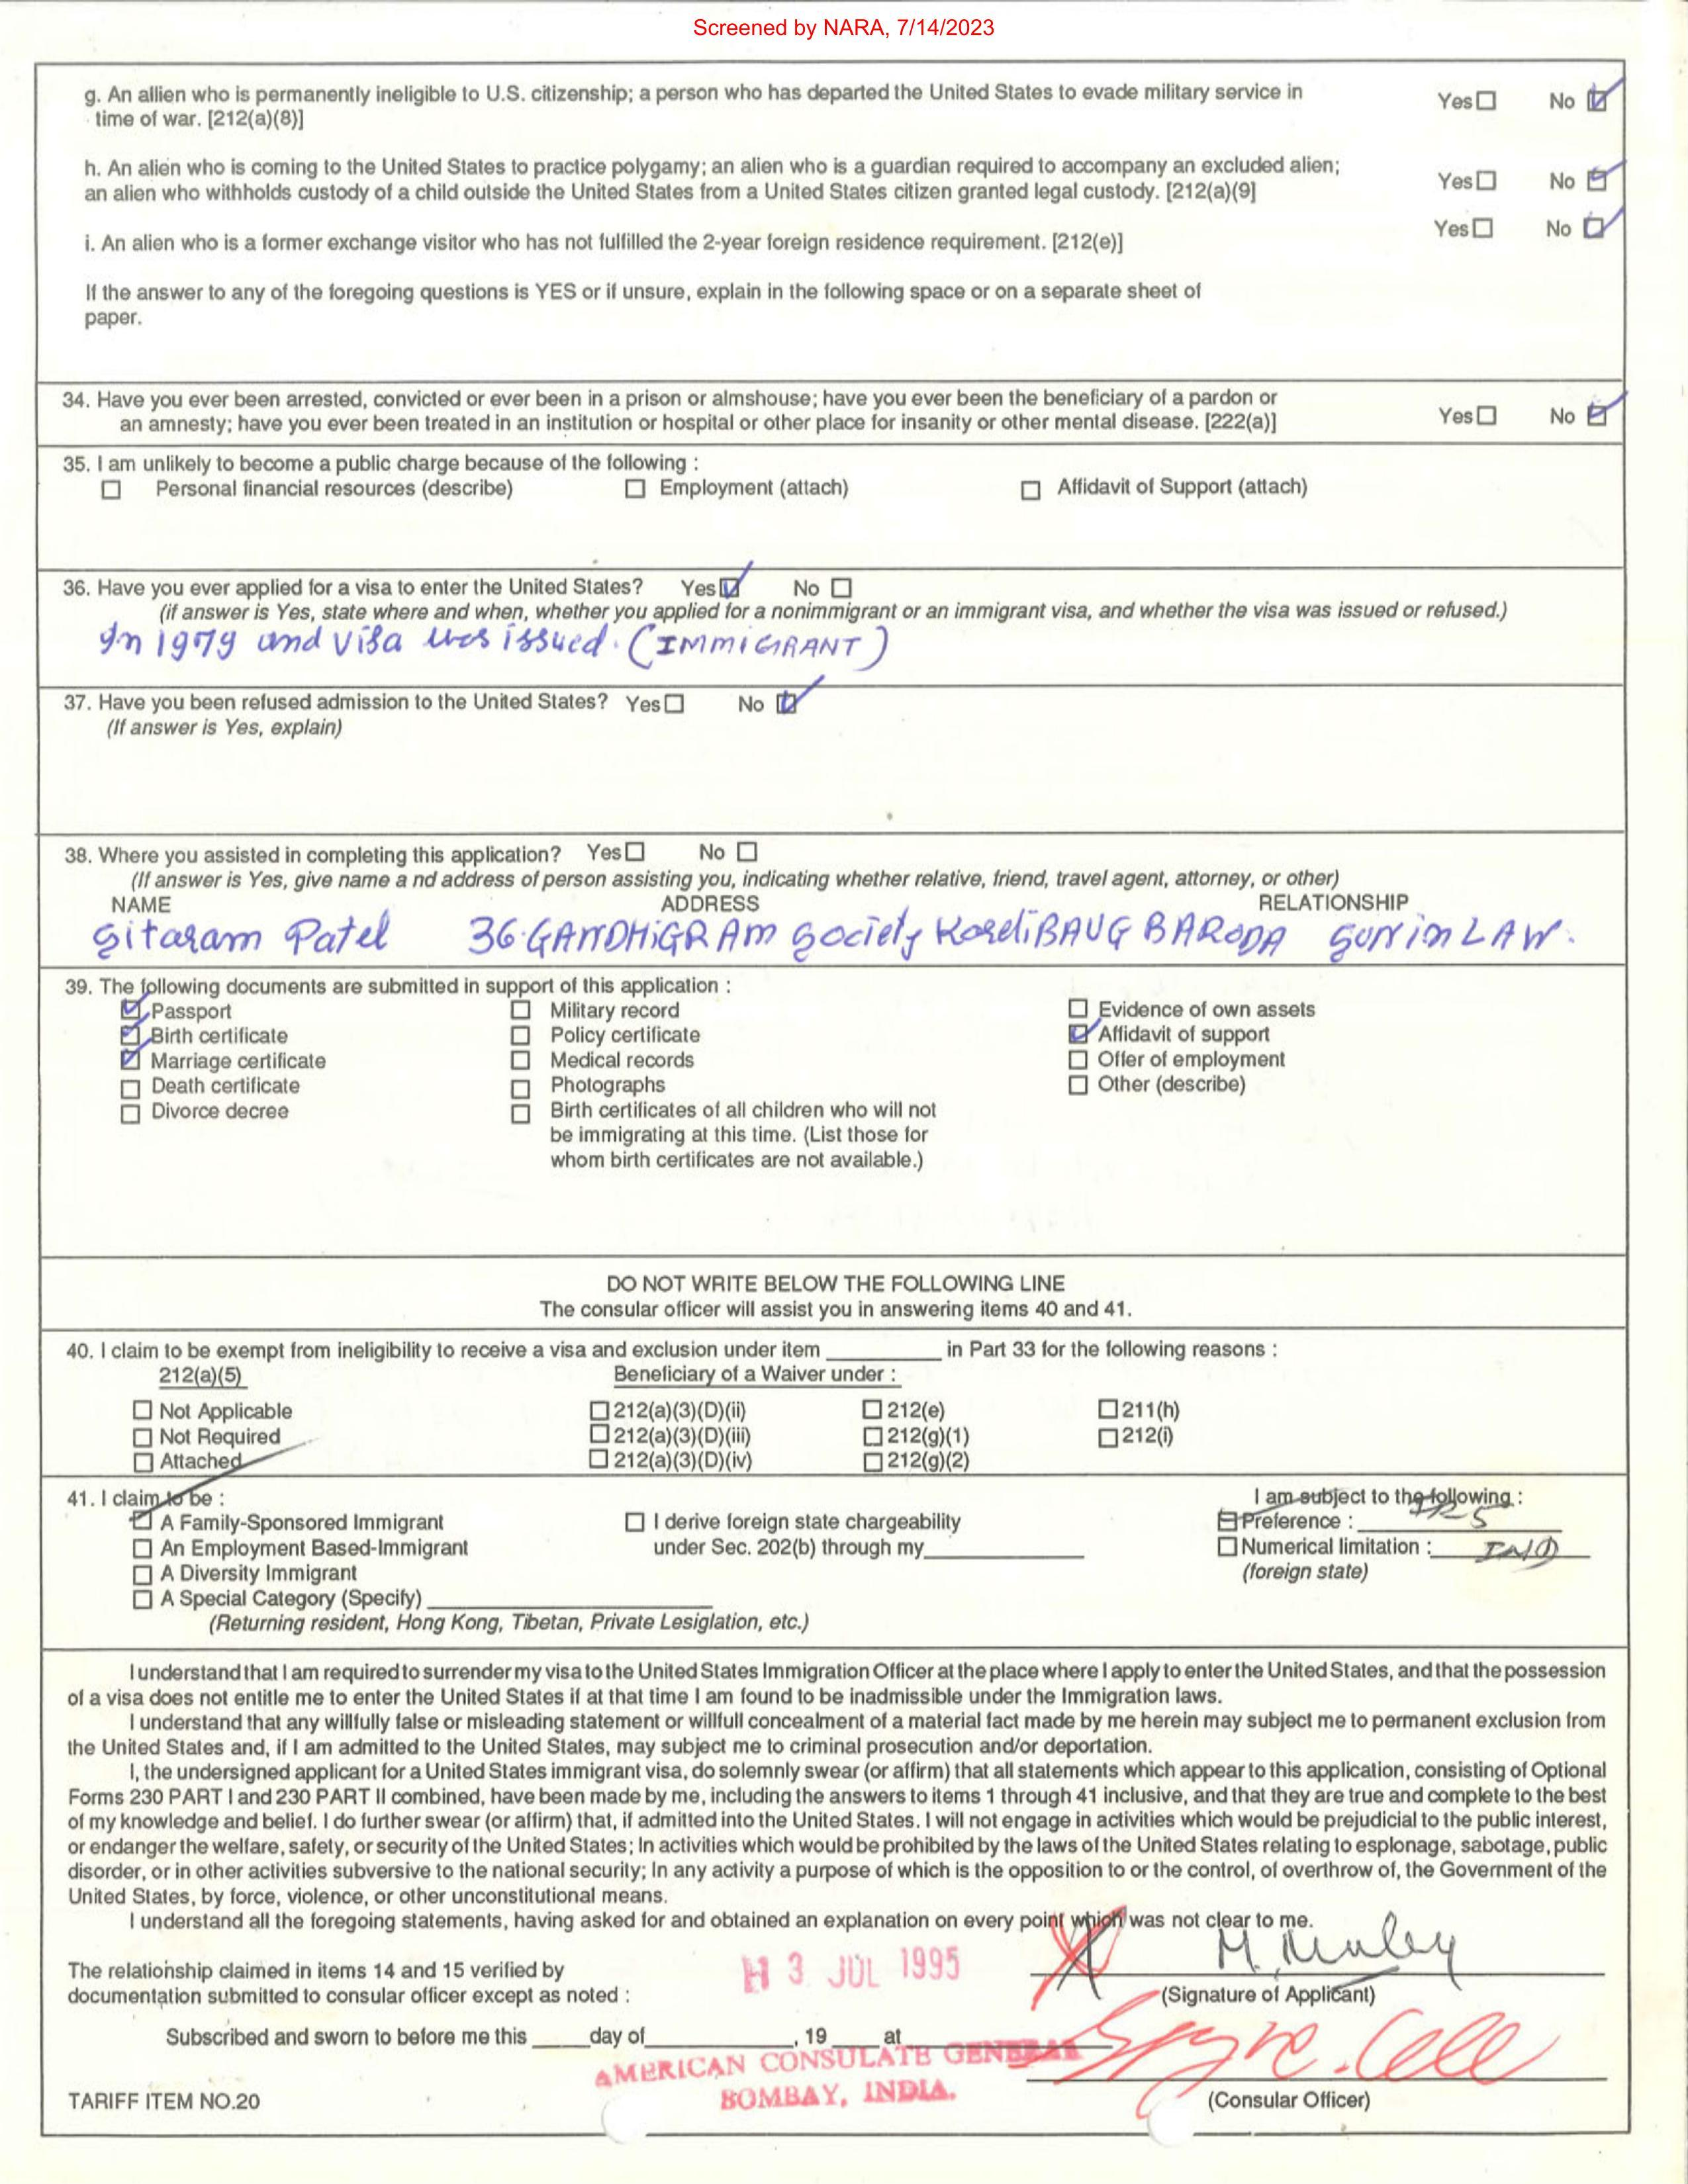 Screened by NARA, 7/14/2023
g. An allien who is permanently ineligible to U.S. citizenship; a person who has departed the United States to evade military service in
time of war. [212(a)(8)]
Yes☐ No ☑
h. An alien who is coming to the United States to practice polygamy; an alien who is a guardian required to accompany an excluded alien;
an alien who withholds custody of a child outside the United States from a United States citizen granted legal custody. [212(a)(9]
Yes☐ No ☑
i. An alien who is a former exchange visitor who has not fulfilled the 2-year foreign residence requirement. [212(e)]
Yes☐ No ☑
If the answer to any of the foregoing questions is YES or if unsure, explain in the following space or on a separate sheet of
paper.
34. Have you ever been arrested, convicted or ever been in a prison or almshouse; have you ever been the beneficiary of a pardon or
an amnesty; have you ever been treated in an institution or hospital or other place for insanity or other mental disease. [222(a)]
Yes☐ No ☑
35. I am unlikely to become a public charge because of the following :
☐ Personal financial resources (describe) ☐ Employment (attach) ☐ Affidavit of Support (attach)
36. Have you ever applied for a visa to enter the United States? Yes☑ No ☐
(if answer is Yes, state where and when, whether you applied for a nonimmigrant or an immigrant visa, and whether the visa was issued or refused.)
In 1979 and visa was issued. (IMMIGRANT)
37. Have you been refused admission to the United States? Yes☐ No ☑
(If answer is Yes, explain)
38. Where you assisted in completing this application? Yes☐ No ☐
(If answer is Yes, give name a nd address of person assisting you, indicating whether relative, friend, travel agent, attorney, or other)
NAME ADDRESS RELATIONSHIP
Sitaram Patel 36 GANDHIGRAM Society KareliBAUG BARODA Sun in LAW.
39. The following documents are submitted in support of this application :
☑ Passport ☐ Military record ☐ Evidence of own assets
☑ Birth certificate ☐ Policy certificate ☑ Affidavit of support
☑ Marriage certificate ☐ Medical records ☐ Offer of employment
☐ Death certificate ☐ Photographs ☐ Other (describe)
☐ Divorce decree ☐ Birth certificates of all children who will not
be immigrating at this time. (List those for
whom birth certificates are not available.)
DO NOT WRITE BELOW THE FOLLOWING LINE
The consular officer will assist you in answering items 40 and 41.
40. I claim to be exempt from ineligibility to receive a visa and exclusion under item ________ in Part 33 for the following reasons :
212(a)(5) Beneficiary of a Waiver under :
☐ Not Applicable ☐ 212(a)(3)(D)(ii) ☐ 212(e) ☐ 211(h)
☐ Not Required ☐ 212(a)(3)(D)(iii) ☐ 212(g)(1) ☐ 212(i)
☐ Attached ☐ 212(a)(3)(D)(iv) ☐ 212(g)(2)
41. I claim to be : I am subject to the following :
☑ A Family-Sponsored Immigrant ☐ I derive foreign state chargeability ☐ Preference : IR5
☐ An Employment Based-Immigrant under Sec. 202(b) through my________ ☐ Numerical limitation : IND
☐ A Diversity Immigrant (foreign state)
☐ A Special Category (Specify) ________
(Returning resident, Hong Kong, Tibetan, Private Lesiglation, etc.)
I understand that I am required to surrender my visa to the United States Immigration Officer at the place where I apply to enter the United States, and that the possession
of a visa does not entitle me to enter the United States if at that time I am found to be inadmissible under the Immigration laws.
I understand that any willfully false or misleading statement or willfull concealment of a material fact made by me herein may subject me to permanent exclusion from
the United States and, if I am admitted to the United States, may subject me to criminal prosecution and/or deportation.
I, the undersigned applicant for a United States immigrant visa, do solemnly swear (or affirm) that all statements which appear to this application, consisting of Optional
Forms 230 PART I and 230 PART II combined, have been made by me, including the answers to items 1 through 41 inclusive, and that they are true and complete to the best
of my knowledge and belief. I do further swear (or affirm) that, if admitted into the United States. I will not engage in activities which would be prejudicial to the public interest,
or endanger the welfare, safety, or security of the United States; In activities which would be prohibited by the laws of the United States relating to esplonage, sabotage, public
disorder, or in other activities subversive to the national security; In any activity a purpose of which is the opposition to or the control, of overthrow of, the Government of the
United States, by force, violence, or other unconstitutional means.
I understand all the foregoing statements, having asked for and obtained an explanation on every point which was not clear to me.
The relationship claimed in items 14 and 15 verified by
documentation submitted to consular officer except as noted :
3 JUL 1995
(Signature of Applicant)
Subscribed and sworn to before me this ____ day of ________, 19 ____ at
AMERICAN CONSULATE GENERAL
BOMBAY, INDIA.
TARIFF ITEM NO.20
(Consular Officer)